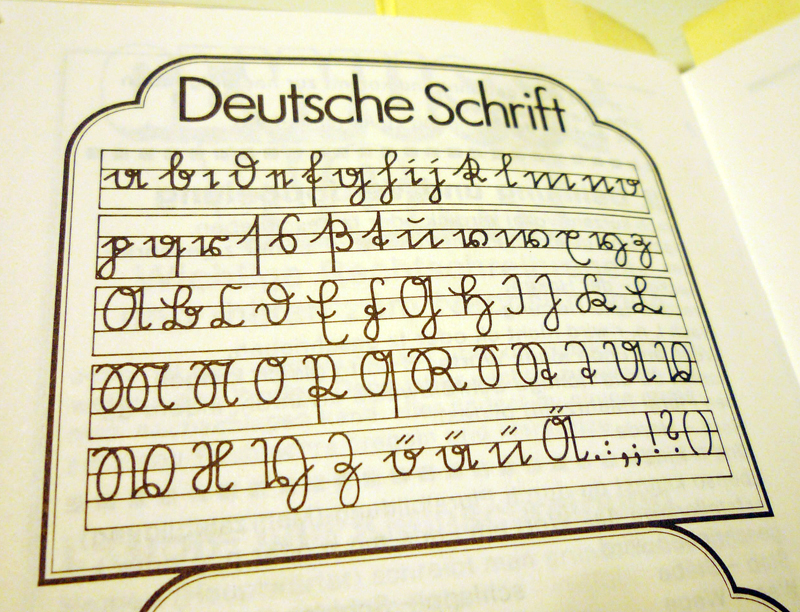 Deutsche Schrift
a b c d e f g h i j k l m n o
p q r ſ s ß t u v w x y z
A B C D E F G H I J K L
M N O P Q R S St T U V
W X Y Z ö ä ü Ä . : , ; ! ? ()